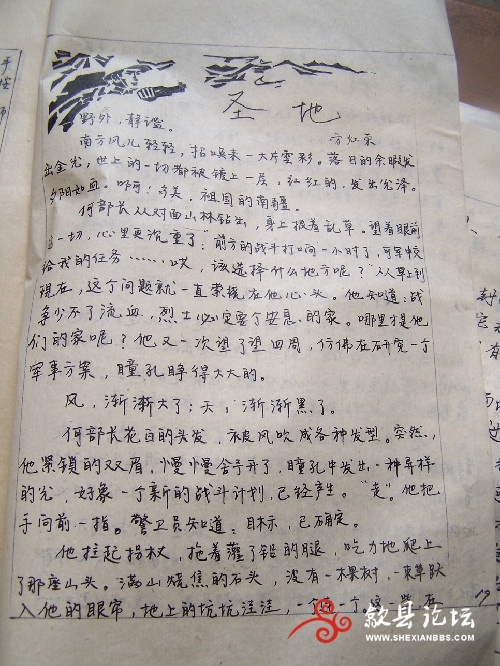 圣地
野外，静谧。
方红
南方风儿轻轻，招唤来一大片云彩。落日的余晖发
出金光，世上的一切都被镀上一层，红红的，发出光泽。
夕阳如血。啊！多美，祖国的南疆。
何部长从对面山林钻出，身上披着乱草。望着眼前
这一切，心里更沉重了："前方的战斗打响一小时了，可军中交
给我的任务……哎，该选择什么地方呢？"从早上到
现在，这个问题就一直索挠在他心头。他知道：战
争少不了流血，烈士必定要个安息的家。哪里才是他
们的家呢？他又一次望了望四周，仿佛在研究一个
军事方案，瞳孔睁得大大的。
风，渐渐大了；天，渐渐黑了。
何部长花白的头发，被风吹成各种发型。突然，
他紧锁的双眉，慢慢舒开了，瞳孔中发出一种异样
的光，好象一个新的战斗计划，已经产生。"走"。他把
手向前一指。警卫员知道：目标，已确定。
他拄起拐杖，拖着灌了铅的腿，吃力地爬上
了那座山头。满山烧焦的石头，没有一棵树，一束草跃
入他的眼帘，地上的坑坑洼洼，一个连一个
歙县论坛
WWW.SHEXIANBBS.COM